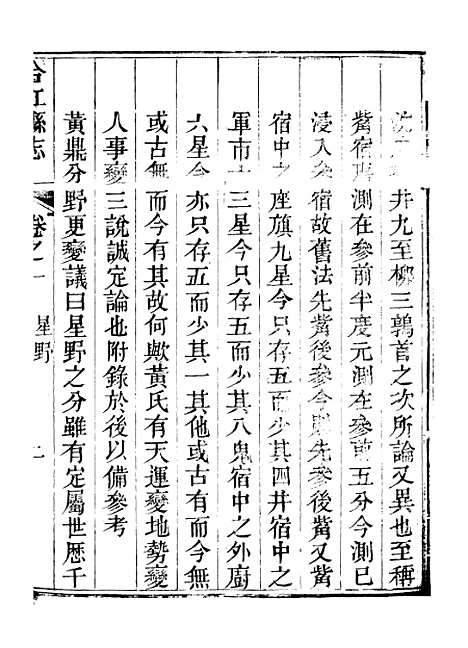 井九至柳三鶉首之次所論又異也至稱
觜宿唐測在參前半度元測在參前五分今測已
浸入參宿故舊法先觜後參今先參後觜又觜
宿中之座旗九星今只存五而少其四井宿中之
軍市十三星今只存五而少其八鬼宿中之外廚
六星今亦只存五而少其一其他或古有而今無
或古無而今有其故何歟黃氏有天運變地勢變
人事變三說誠定論也附錄於後以備參考
黃鼎分野更變議曰星野之分雖有定屬世歷千
合江縣志 卷之一 星野 二